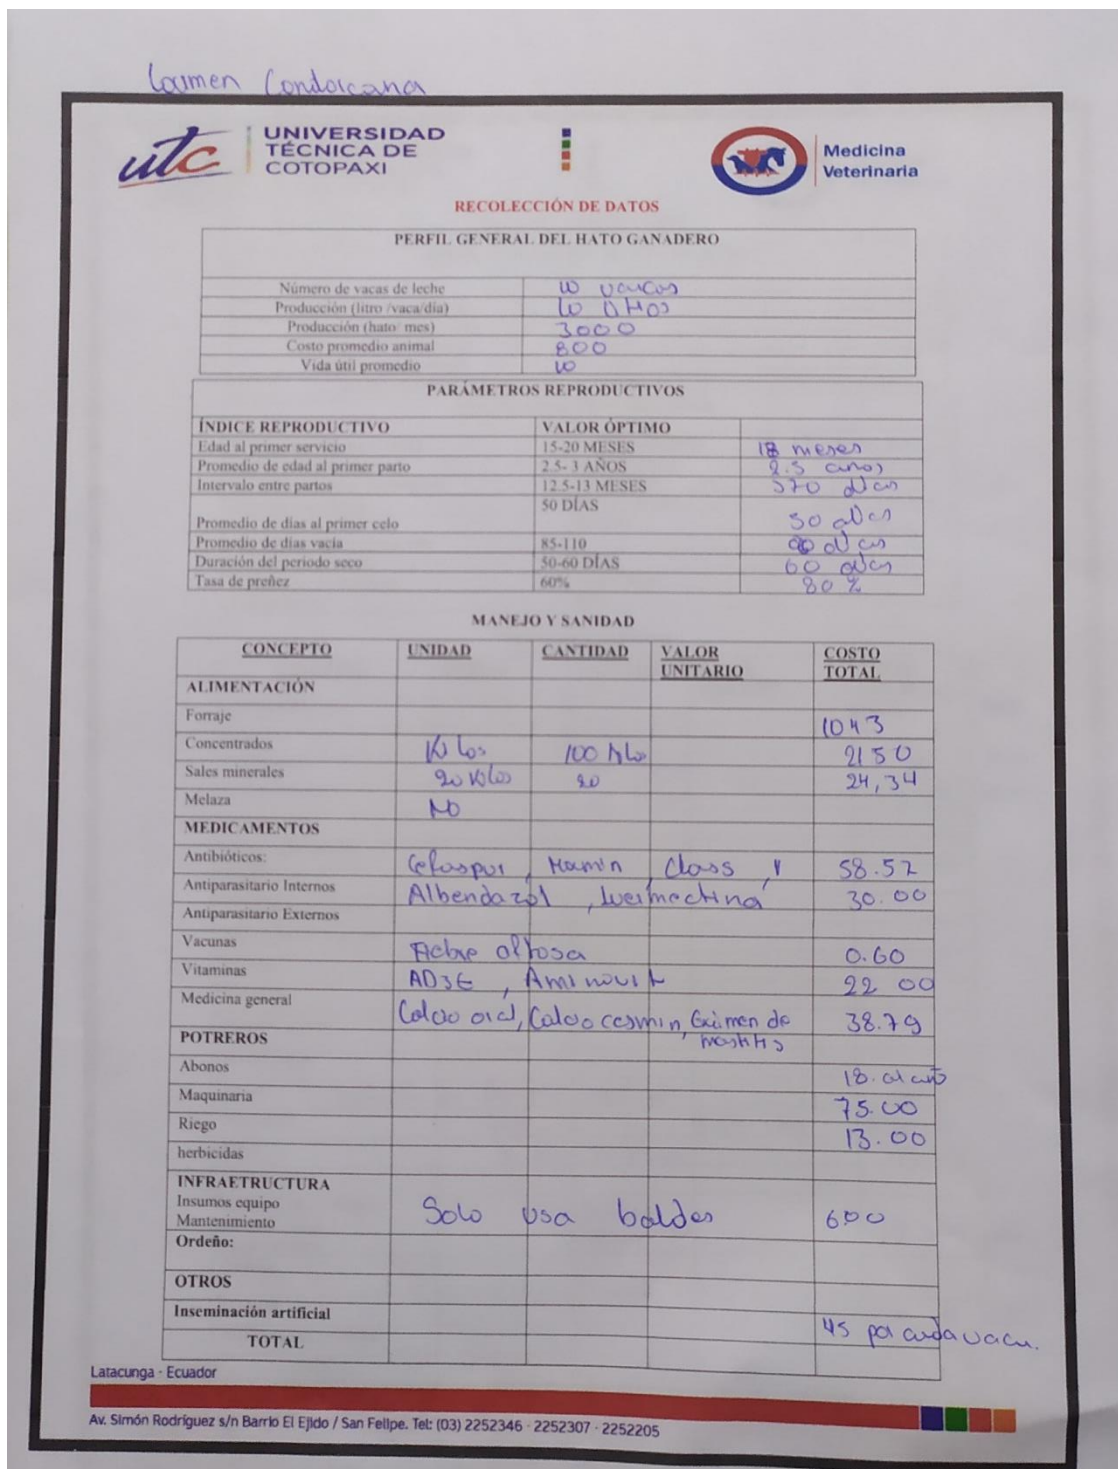 Carmen Condorcana
utc UNIVERSIDAD TÉCNICA DE COTOPAXI
Medicina Veterinaria
RECOLECCIÓN DE DATOS
PERFIL GENERAL DEL HATO GANADERO
Número de vacas de leche 10 vacas
Producción (litro /vaca/día) 10 litros
Producción (hato/ mes) 3000
Costo promedio animal 800
Vida útil promedio 10
PARÁMETROS REPRODUCTIVOS
ÍNDICE REPRODUCTIVO VALOR ÓPTIMO
Edad al primer servicio 15-20 MESES 18 meses
Promedio de edad al primer parto 2.5- 3 AÑOS 2.5 años
Intervalo entre partos 12.5-13 MESES 370 dias
Promedio de días al primer celo 50 DÍAS 50 dias
Promedio de días vacía 85-110 dias
Duración del periodo seco 50-60 DÍAS 60 dias
Tasa de preñez 60% 80 %
MANEJO Y SANIDAD
CONCEPTO UNIDAD CANTIDAD VALOR UNITARIO COSTO TOTAL
ALIMENTACIÓN
Forraje 1043
Concentrados Kilos 100 kilo 2150
Sales minerales 20 kilos 20 24,34
Melaza NO
MEDICAMENTOS
Antibióticos: Mamin, Class, 58.57
Antiparasitario Internos Albendazol, Ivermectina 30.00
Antiparasitario Externos
Vacunas Fiebre aftosa 0.60
Vitaminas AD3E, Aminovit 22 00
Medicina general Calcio oral, Calcio cesmin, Examen de mastitis 38.79
POTREROS
Abonos 18. al año
Maquinaria 75.00
Riego 13.00
herbicidas
INFRAETRUCTURA
Insumos equipo
Mantenimiento Solo usa baldes 600
Ordeño:
OTROS
Inseminación artificial 45 por cada vaca.
TOTAL
Latacunga - Ecuador
Av. Simón Rodríguez s/n Barrio El Ejido / San Felipe. Tel: (03) 2252346 - 2252307 - 2252205